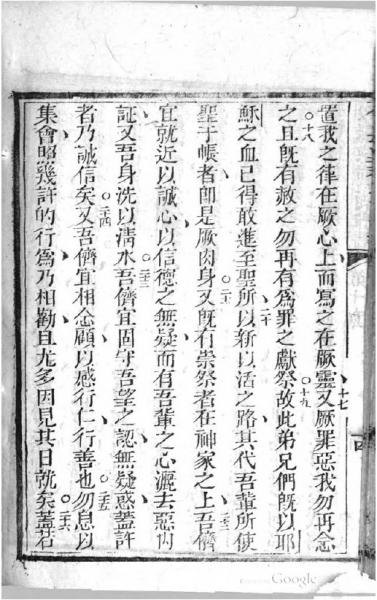 置我之律在厥心上而寫之在厥靈又厥罪惡我勿再念
十七
之且既有赦之勿再有爲罪之獻祭故此弟兄們既以耶
十八
十九
穌之血已得敢進至聖所以新以活之路其代吾輩所使
二十
聖于帳者即是厥肉身又既有崇祭者在神家之上吾儕
二一
二二
宜就近以誠心以信德之無疑而有吾輩之心灑去惡內
証又吾身洗以清水吾儕宜固守吾望之認無疑惑蓋許
二三
者乃誠信矣又吾儕宜相念顧以感行仁行善也勿息以
二四
二五
集會昭幾許的行爲乃相勸且尤多因見其日就矣蓋若
二六
Google